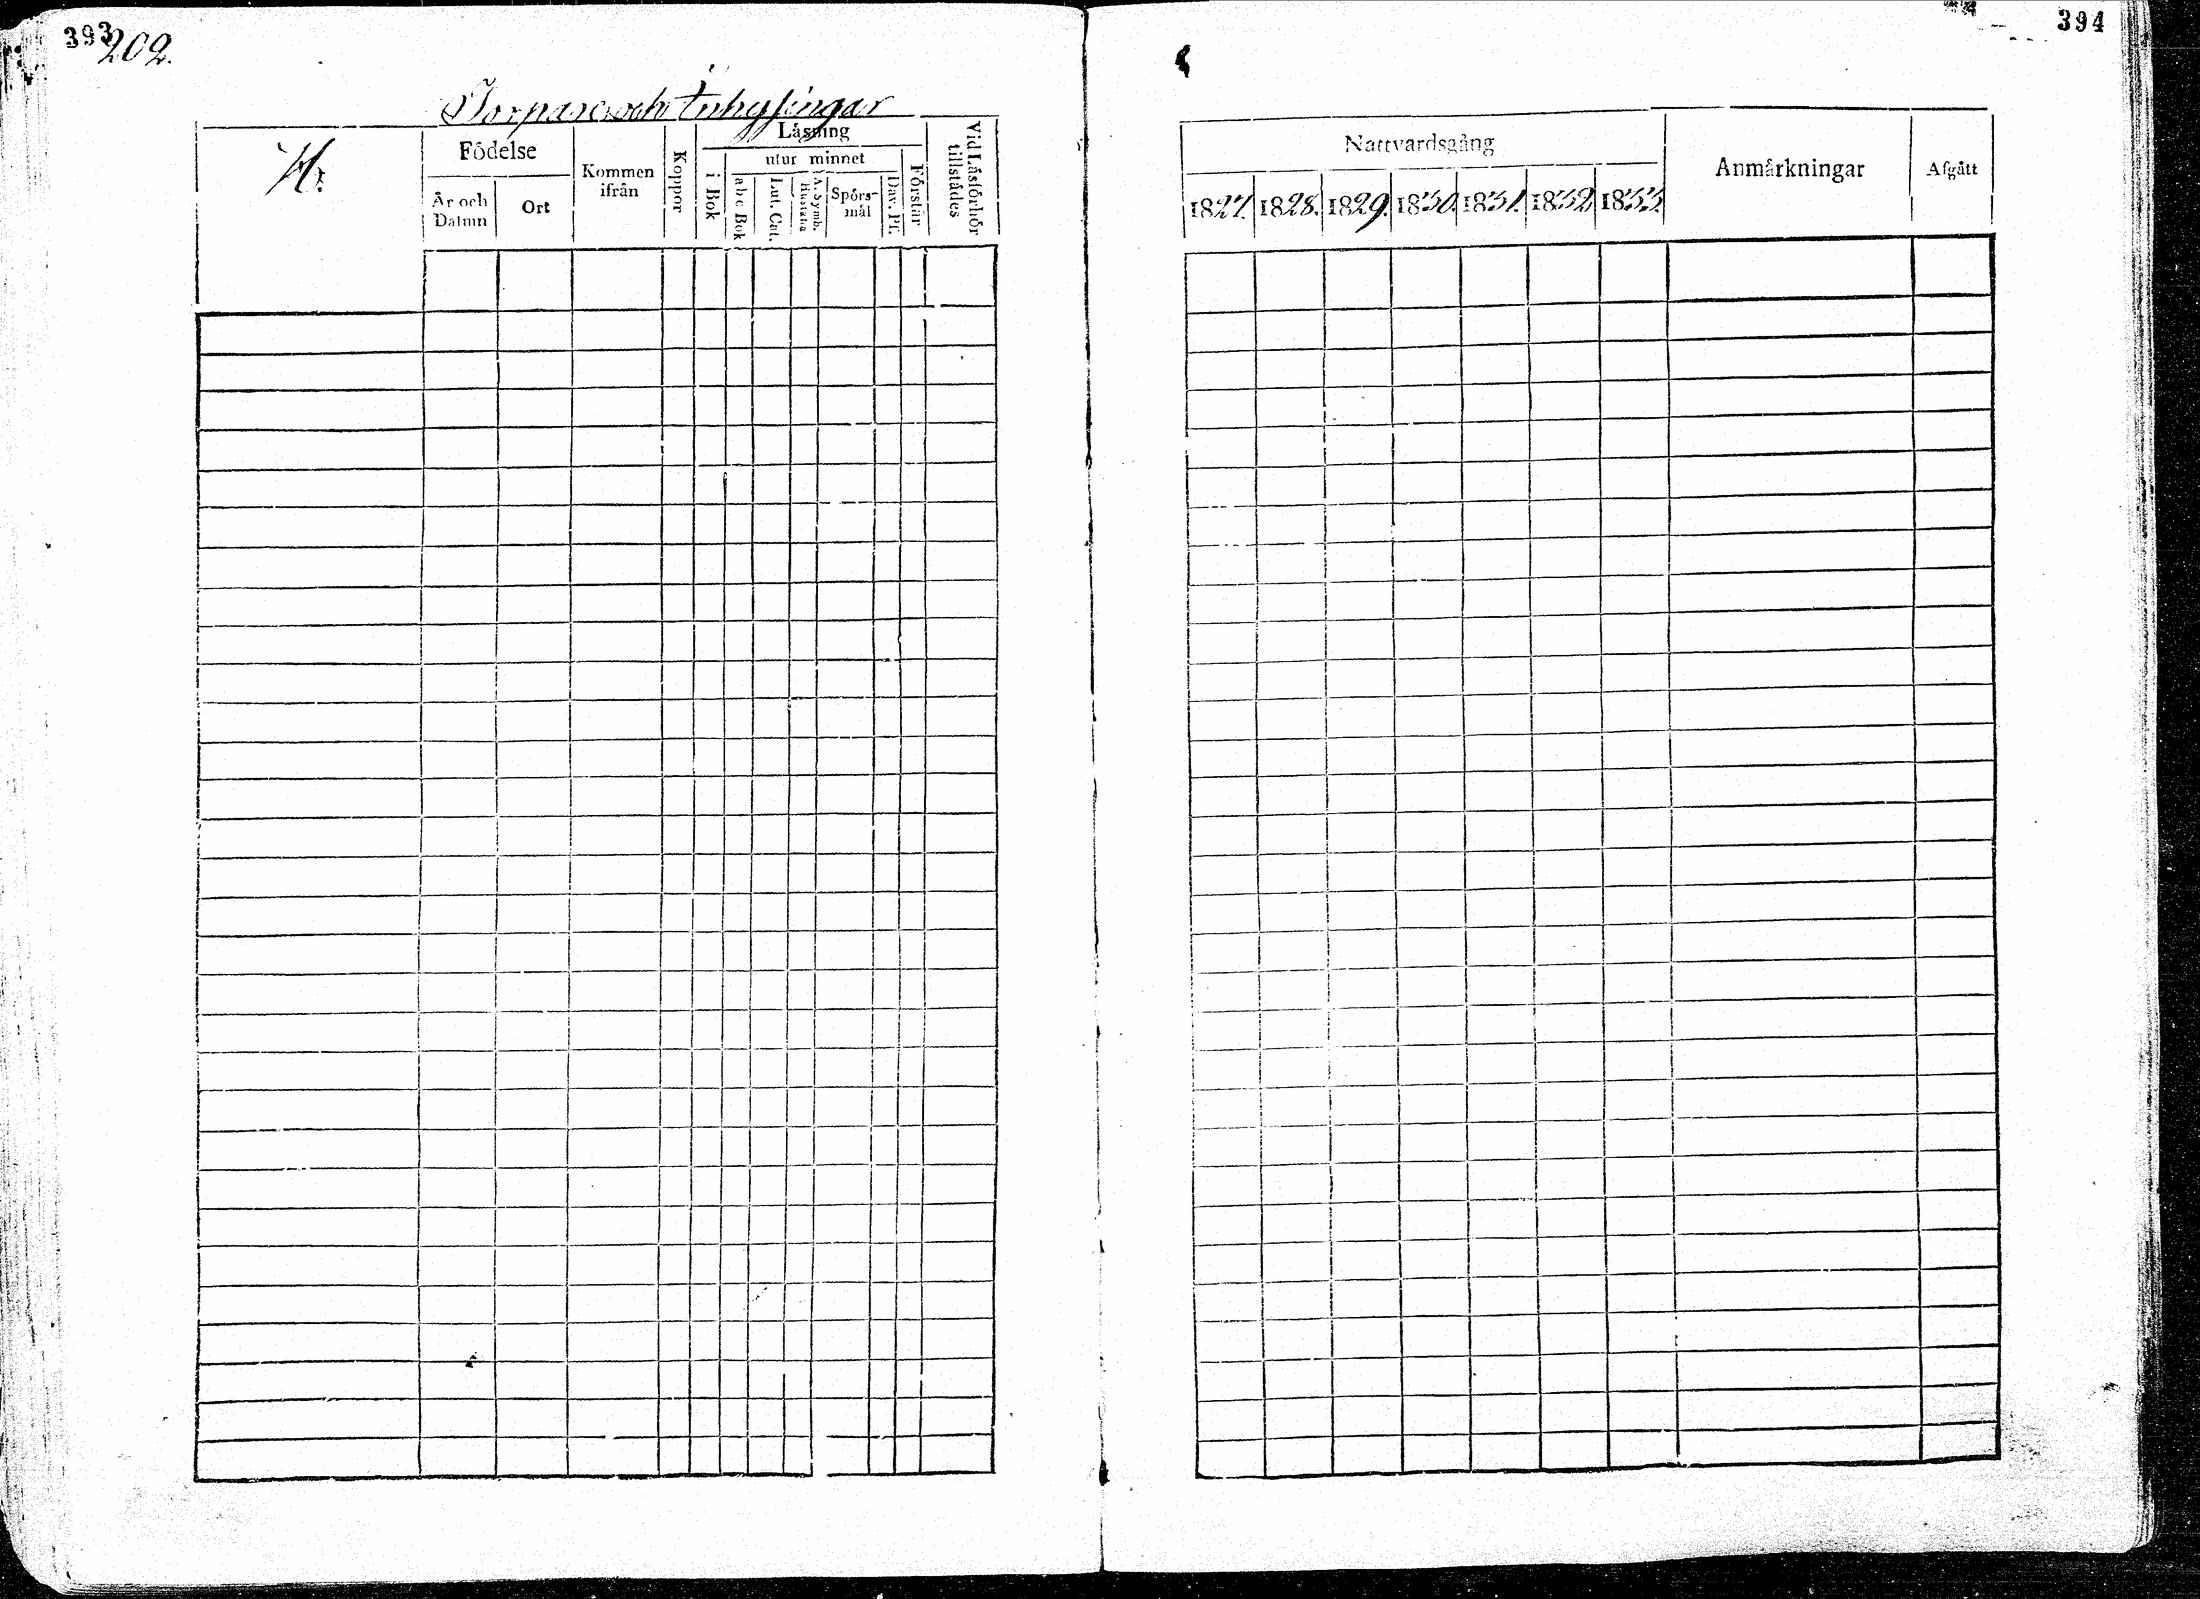 393
202.
Torpare och Inhysingar
H.
Födelse
År och Datum
Ort
Kommen ifrån
Koppor
Läsning
i Bok
utur minnet
a b c Bok
Lut. Cat.
A. Symb.
Hustafla
Spörs-
mål
Dav. Ps.
Förstår
Vid Läsförhör tillstädes
394
Nattvardsgång
1827.
1828.
1829.
1830.
1831.
1832.
1833.
Anmärkningar
Afgått